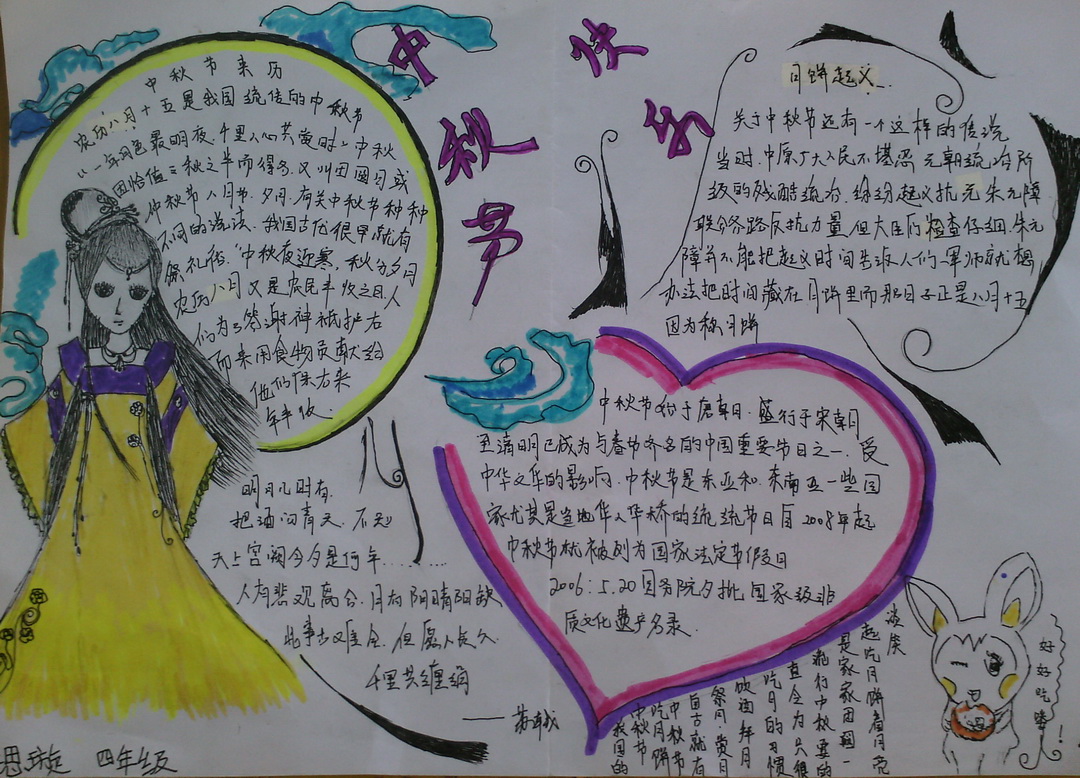 中秋节
快乐
中秋节来历
农历八月十五是我国统传的中秋节
《一年月色最明夜,千里人心共赏时》中秋
因恰值三秋之半而得名又叫团圆月或
仲秋节八月节.夕月.有关中秋节种种
不同的说法.我国古代很早就有
祭礼俗."中秋夜迎寒,秋分夕月
农历八月又是农民丰收之日.人
们为了答谢神祗护右
而来用食物贡献给
他们保右来
年丰收.
明月几时有.
把酒问青天.不知
天上宫阙今夕是何年.........
人有悲观离合.月有阴晴阳缺
此事古难全.但愿人长久.
千里共婵娟
——苏轼
月饼起义
关于中秋节还有一个这样的传说
当时.中原广大人民不堪忍元朝统治阶
级的残酷统治.纷纷起义抗元朱元障
联合各路反抗力量.但大臣们检查仔细.朱元
障并不能把起义时间告诉人们军师就想
办法把时间藏在月饼里而那日子正是八月十五
因为称月饼
中秋节始于唐朝日.盛行于宋朝
至清明已成为与春节齐名的中国重要节日之一.受
中华文华的影响.中秋节是东亚和.东南亚一些国
家尤其是当地华人华桥的统统节日自2008年起
中秋节就被列为国家法定节假日
2006:5.20国务院夕批国家级非
质文化遗产名录.
谈侯
起吃月饼看月亮
是家家团圆一
流行中秋重要的
直今为只很
吃月的习惯
饮酒拜月
祭月.赏月
自古就有
中秋节
吃月饼
中秋节
我国的
好好吃喽!
思璇 四年级